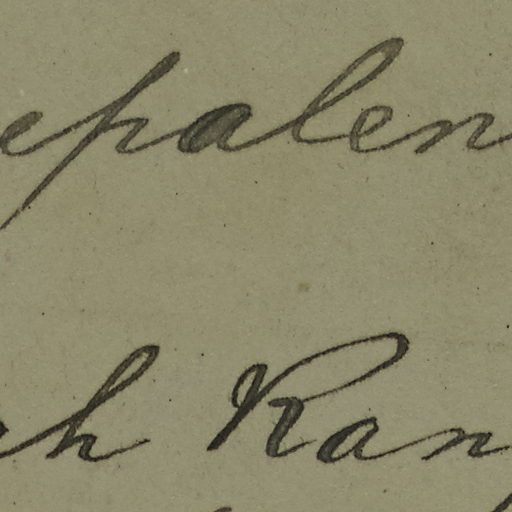 epalen
h Ran